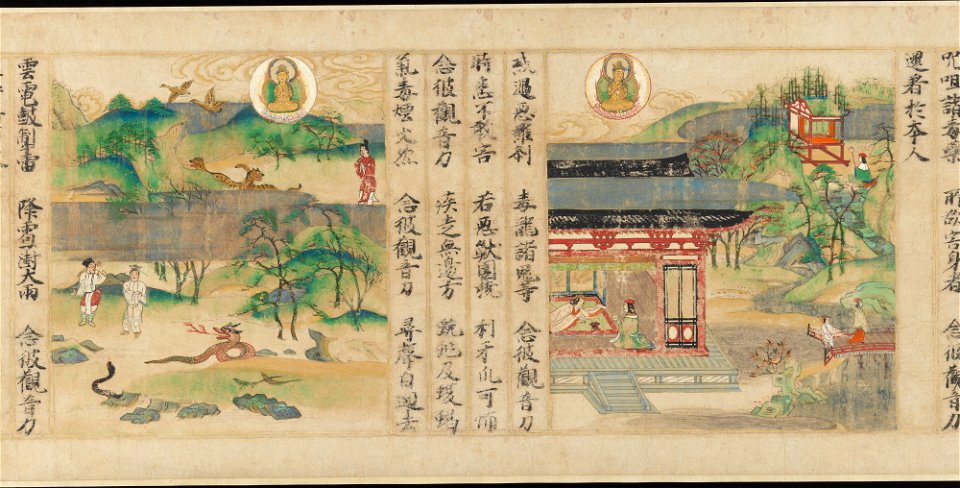 呪咀諸毒藥 所欲害身者 念彼觀音力
還著於本人
或遇惡羅刹 毒龍諸鬼等 念彼觀音力
時悉不敢害 若惡獸圍繞 利牙爪可怖
念彼觀音力 疾走無邊方 蚖虵及蝮蝎
氣毒煙火然 念彼觀音力 尋聲自迴去
雲雷皷掣電 降雹澍大雨 念彼觀音力